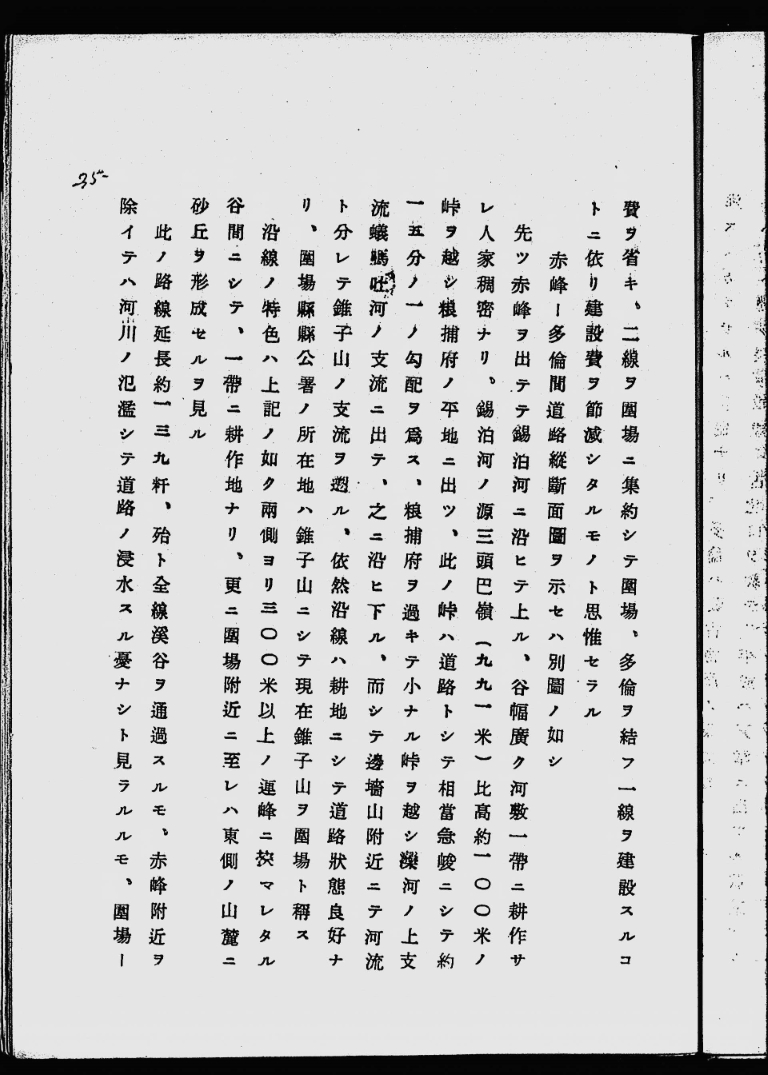 費ヲ省キ、二線ヲ圍場ニ集約シテ圍場、多倫ヲ結フ一線ヲ建設スルコ
トニ依リ建設費ヲ節減シタルモノト思惟セラル
赤峰ー多倫間道路縱斷面圖ヲ示セハ別圖ノ如シ
先ツ赤峰ヲ出テテ錫泊河ニ沿ヒテ上ル、谷幅廣ク河敷一帶ニ耕作サ
レ人家稠密ナリ、錫泊河ノ源三頭巴嶺(九九一米)比高約一〇〇米ノ
峠ヲ越シ粮捕府ノ平地ニ出ツ、此ノ峠ハ道路トシテ相當急峻ニシテ約
一五分ノ一ノ勾配ヲ爲ス、粮捕府ヲ過キテ小ナル峠ヲ越シ灤河ノ上支
流蟻螞吐河ノ支流ニ出テ、之ニ沿ヒ下ル、而シテ邊墻山附近ニテ河流
ト分レテ錐子山ノ支流ヲ遡ル、依然沿線ハ耕地ニシテ道路狀態良好ナ
リ、圍場縣縣公署ノ所在地ハ錐子山ニシテ現在錐子山ヲ圍場ト稱ス
沿線ノ特色ハ上記ノ如ク兩側ヨリ三〇〇米以上ノ連峰ニ挾マレタル
谷間ニシテ、一帶ニ耕作地ナリ、更ニ圍場附近ニ至レハ東側ノ山麓ニ
砂丘ヲ形成セルヲ見ル
此ノ路線延長約一三九粁、殆ト全線溪谷ヲ通過スルモ、赤峰附近ヲ
除イテハ河川ノ氾濫シテ道路ノ浸水スル憂ナシト見ラルルモ、圍場ー
-35-